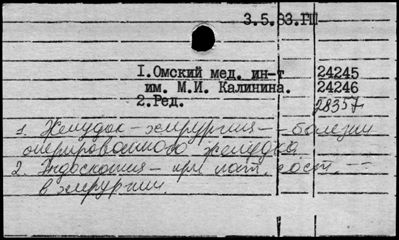 3.5.83.ГШ
I.Омский мед. ин-т 24245
им. М.И. Калинина. 24246
2.Ред. 28357
1. Желудок – хирургия – – болезни
оперированного желудка
2. Эндоскопия – при пат. сост. –
в хирургии